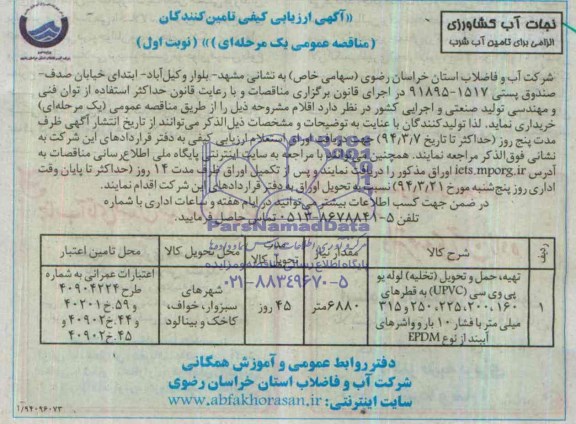 نجات آب کشاورزی
الزامی برای تامین آب شرب
«آگهی ارزیابی کیفی تامین‌کنندگان
(مناقصه عمومی یک مرحله‌ای)» (نوبت اول)
شرکت آب و فاضلاب استان خراسان رضوی (سهامی خاص) به نشانی مشهد- بلوار وکیل‌آباد- ابتدای خیابان صدف-
صندوق پستی ۱۵۱۷-۹۱۸۹۵ در اجرای قانون برگزاری مناقصات و با رعایت قانون حداکثر استفاده از توان فنی
و مهندسی تولید صنعتی و اجرایی کشور در نظر دارد اقلام مشروحه ذیل را از طریق مناقصه عمومی (یک مرحله‌ای)
خریداری نماید. لذا تولیدکنندگان با عنایت به توضیحات و مشخصات ذیل‌الذکر می‌توانند از تاریخ انتشار آگهی ظرف
مدت پنج روز (حداکثر تا تاریخ ۹۴/۳/۷) جهت دریافت اوراق استعلام ارزیابی کیفی به دفتر قراردادهای این شرکت به
نشانی فوق‌الذکر مراجعه نمایند. همچنین می‌توانند با مراجعه به سایت اینترنتی پایگاه ملی اطلاع‌رسانی مناقصات به
آدرس iets.mporg.ir اوراق مذکور را دریافت نمایند و پس از تکمیل اوراق ظرف مدت ۱۴ روز (حداکثر تا پایان وقت
اداری روز پنج‌شنبه مورخ ۹۴/۳/۲۱) نسبت به تحویل اوراق به دفتر قراردادهای این شرکت اقدام نمایند.
در ضمن جهت کسب اطلاعات بیشتر می‌توانید در ایام هفته و ساعات اداری با شماره
تلفن ۵-۸۶۷۸۸۴۱-۰۵۱۳ تماس حاصل فرمایید.
ParsNamadData
۰۲۱-۸۸۳۴۹۶۷۰-۵
ردیف | شرح کالا | مقدار نیاز | تحویل کالا | محل تحویل کالا | محل تامین اعتبار
۱ | تهیه، حمل و تحویل (تخلیه) لوله یو پی وی سی (UPVC) به قطرهای ۱۶۰، ۲۰۰، ۲۲۵، ۲۵۰ و ۳۱۵ میلی متر با فشار ۱۰ بار و واشرهای آببند از نوع EPDM | ۶۸۸۰متر | ۴۵ روز | شهرهای سبزوار، خواف، کاخک و بینالود | اعتبارات عمرانی به شماره طرح ۴۰۹۰۴۲۲۴ و ۵۹.خ۴۰۲۰۱ و ۴۴.خ۴۰۹۰۲ و ۴۵.خ۴۰۹۰۲
دفتر روابط عمومی و آموزش همگانی
شرکت آب و فاضلاب استان خراسان رضوی
سایت اینترنتی: www.abfakhorasan.ir
۱/۹۴۰۹۶۰۷۳